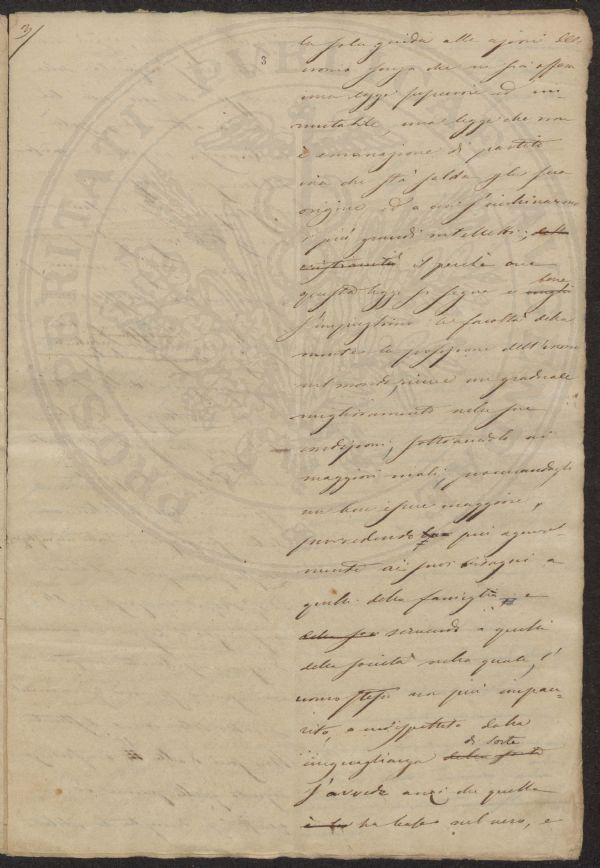 3
3
la sola guida alle azioni dell'
uomo senza che ne sia offesa
una legge superiore ed im-
mutabile, una legge che non
è emanazione di partito
ma che sta salda per sua
origine ed a cui s'inchinarono
i più grandi intelletti;
è perchè ove
questa legge si segue e bene
s'impieghino le facoltà della
mente la posizione dell'uomo
nel mondo, riceve un graduale
miglioramento nelle sue
condizioni, sottraendolo ai
maggiori mali, procurandogli
un ben essere maggiore,
provvedendo più agevol-
mente ai suoi bisogni a
quelli della famiglia, e
della sua servendo a quelli
della società nella quale, l'
uomo stesso non più impau-
rito, o indispettito dalla
di sorte
inuguaglianza della sorte
s'avvede anzi che quella
ha base nel vero, e
PROSPERITATI PUBL